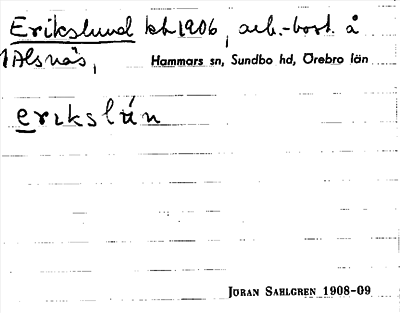 Erikslund kb 1906, arb.-bost. å
Alsnäs, Hammars sn, Sundbo hd, Örebro län
erikslún
JÖRAN SAHLGREN 1908-09